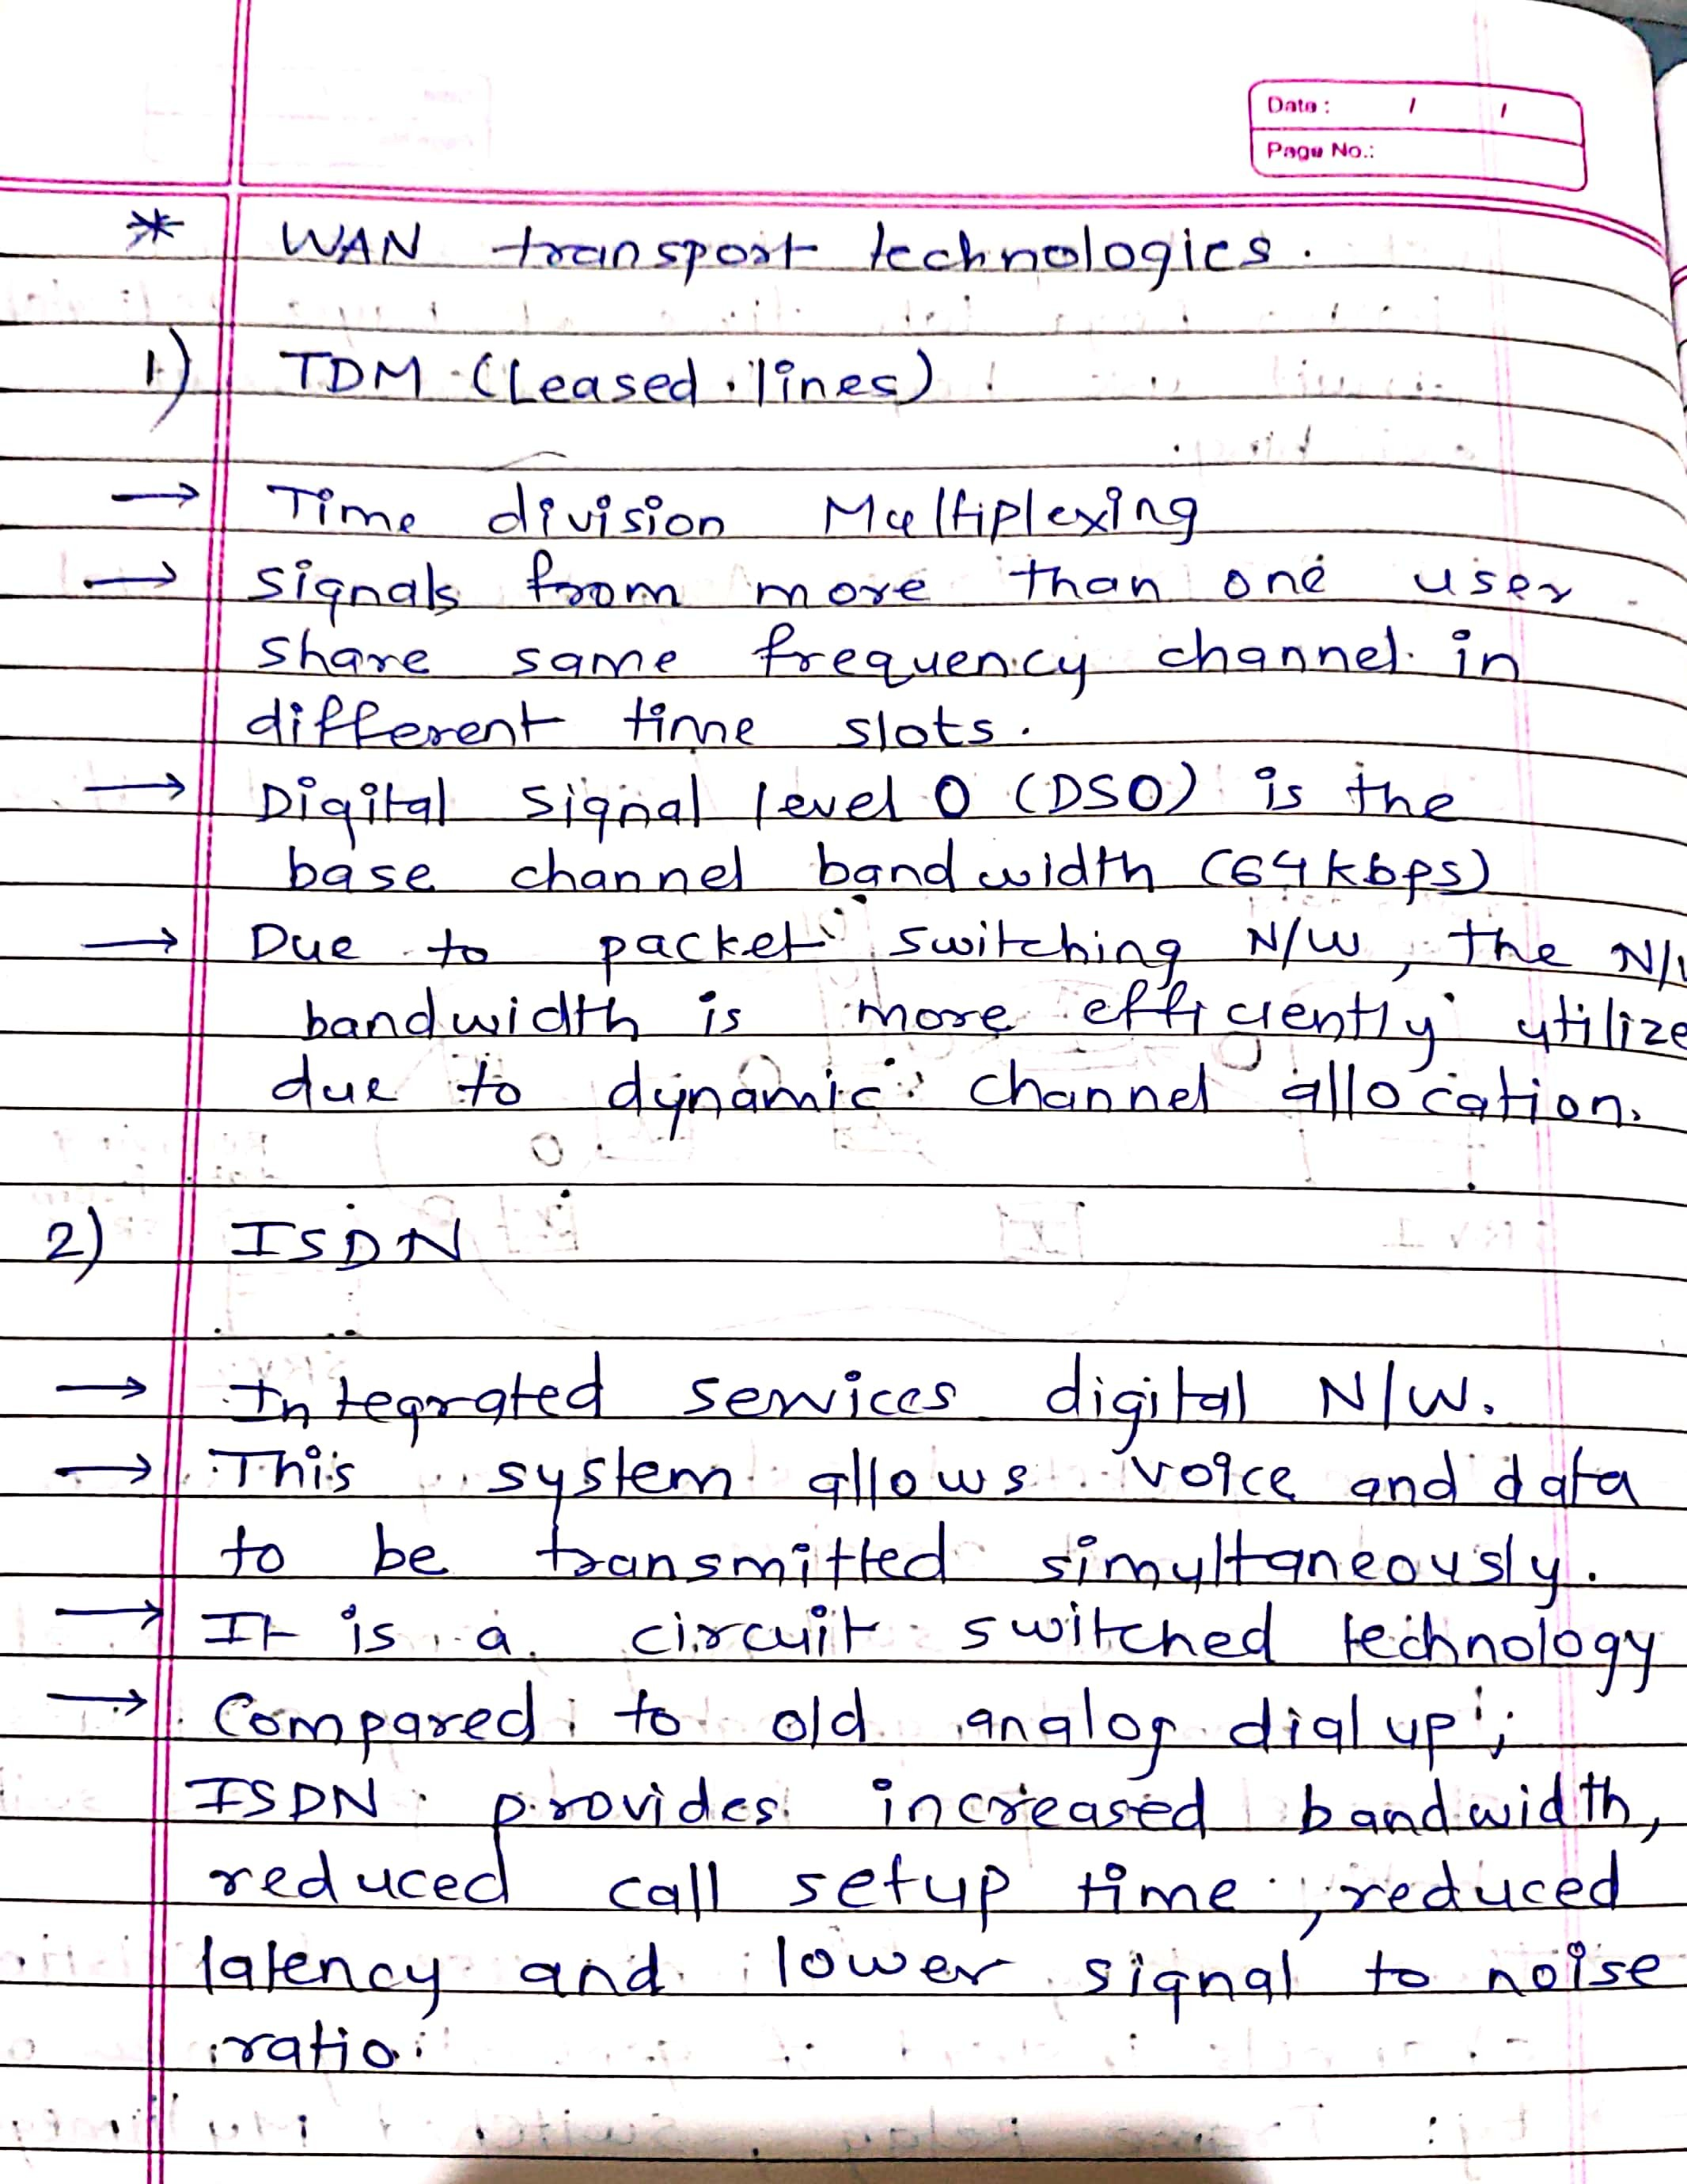 Date : / /
Page No.:
* WAN transport technologies.
1) TDM (Leased lines)
→ Time division Multiplexing
→ signals from more than one user
share same frequency channel in
different time slots.
→ Digital signal level 0 (DS0) is the
base channel bandwidth (64kbps)
→ Due to packet switching N/W, the N/
bandwidth is more efficiently utilize
due to dynamic channel allocation.
2) ISDN
→ Integrated services digital N/W.
→ This system allows voice and data
to be transmitted simultaneously.
→ It is a circuit switched technology
→ Compared to old analog dial up,
ISDN provides increased bandwidth,
reduced call setup time, reduced
latency and lower signal to noise
ratio.